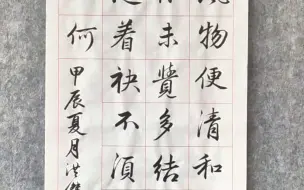 物便清和
未覺多結
着袂不須
何
甲辰夏月洪